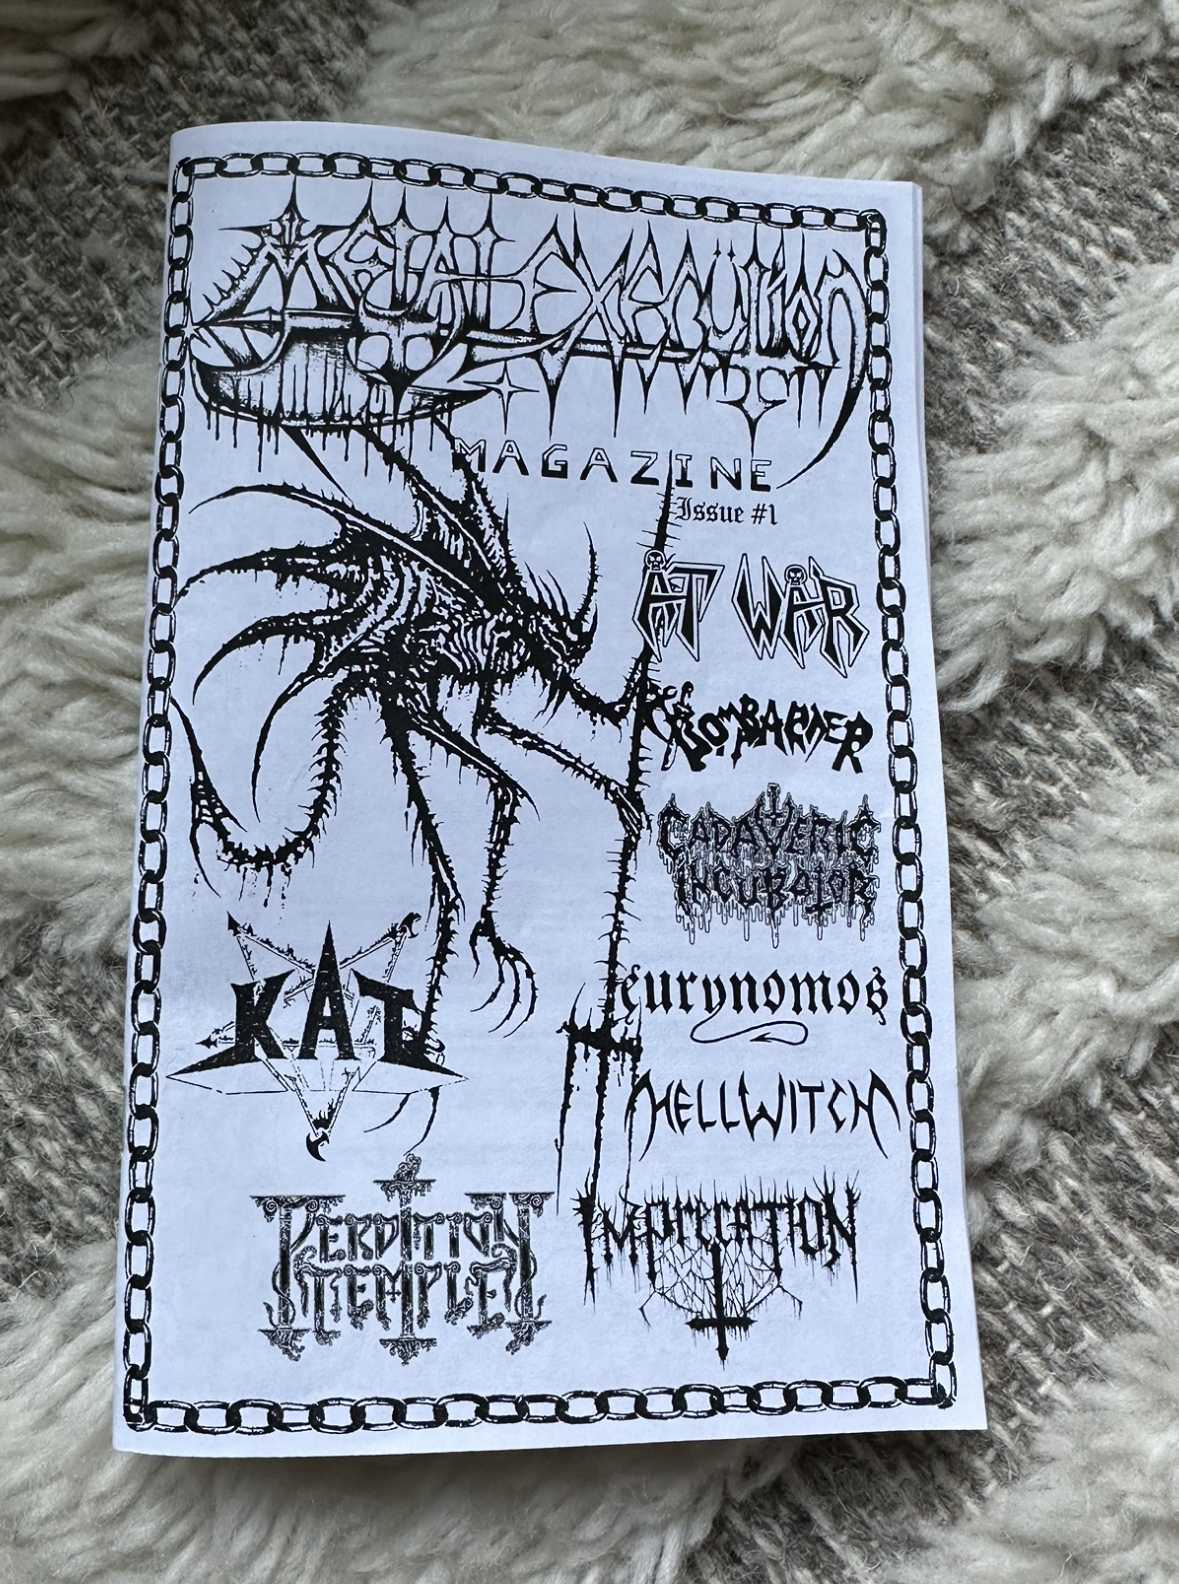 METAL EXECÜTION
MAGAZINE
Issue #1
ÅT WÅR
BOMBARDER
CADAVERIC
INCUBATOR
eurynomos
HELLWITCH
KAT
PERDITION
TEMPLE
IMPRECATION